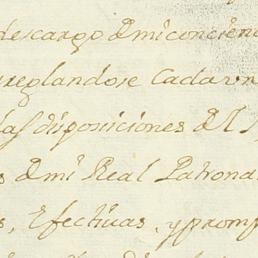 descargo de mi concien
arreglandose cada un
las disposiciones del
s de mi Real Patrona
s, efectivas, y promp